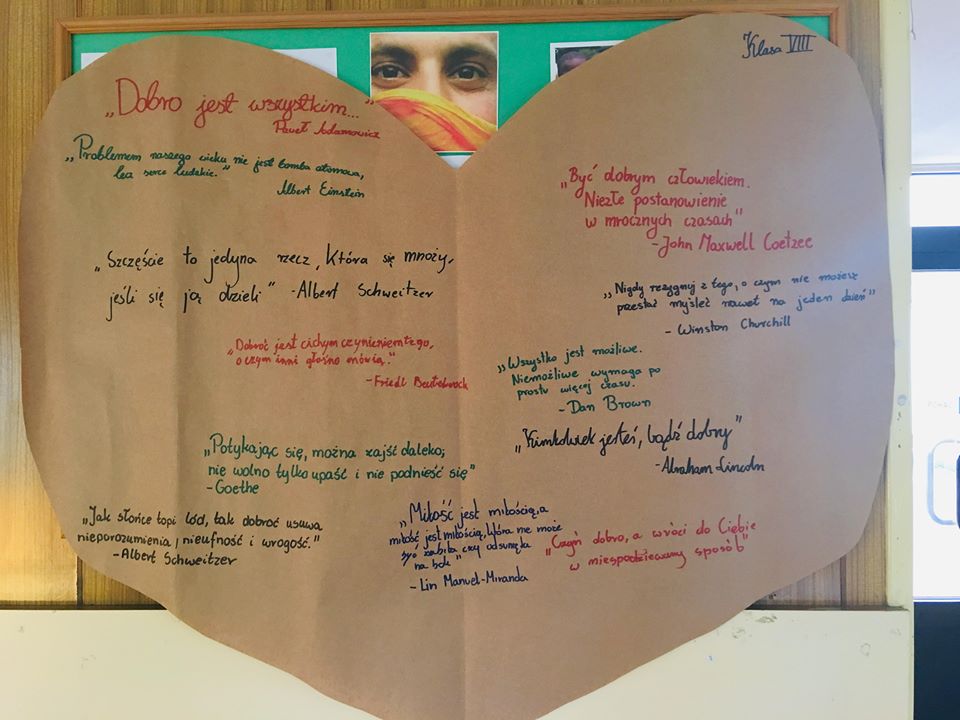 Klasa VIII
„Dobro jest wszystkim..."
Paweł Adamowicz
„Problemem naszego wieku nie jest bomba atomowa,
lecz serce ludzkie."
Albert Einstein
„Szczęście to jedyna rzecz, która się mnoży,
jeśli się ją dzieli" -Albert Schweitzer
„Dobroć jest cichym czynieniem tego,
o czym inni głośno mówią."
-Friedl Beutelrock
„Potykając się, można zajść daleko;
nie wolno tylko upaść i nie podnieść się"
-Goethe
„Jak słońce topi lód, tak dobroć usuwa
nieporozumienia, nieufność i wrogość."
-Albert Schweitzer
„Być dobrym człowiekiem.
Niezłe postanowienie
w mrocznych czasach"
-John Maxwell Coetzee
„Nigdy rezygnuj z tego, o czym nie możesz
przestać myśleć nawet na jeden dzień"
- Winston Churchill
„Wszystko jest możliwe.
Niemożliwe wymaga po
prostu więcej czasu.
-Dan Brown
„Kimkolwiek jesteś, bądź dobry"
-Abraham Lincoln
„Miłość jest miłością, a
miłość jest miłością, która nie może
być zabita czy odsunięta
na bok"
- Lin Manuel-Miranda
„Czyń dobro, a wróci do Ciebie
w niespodziewany sposób"